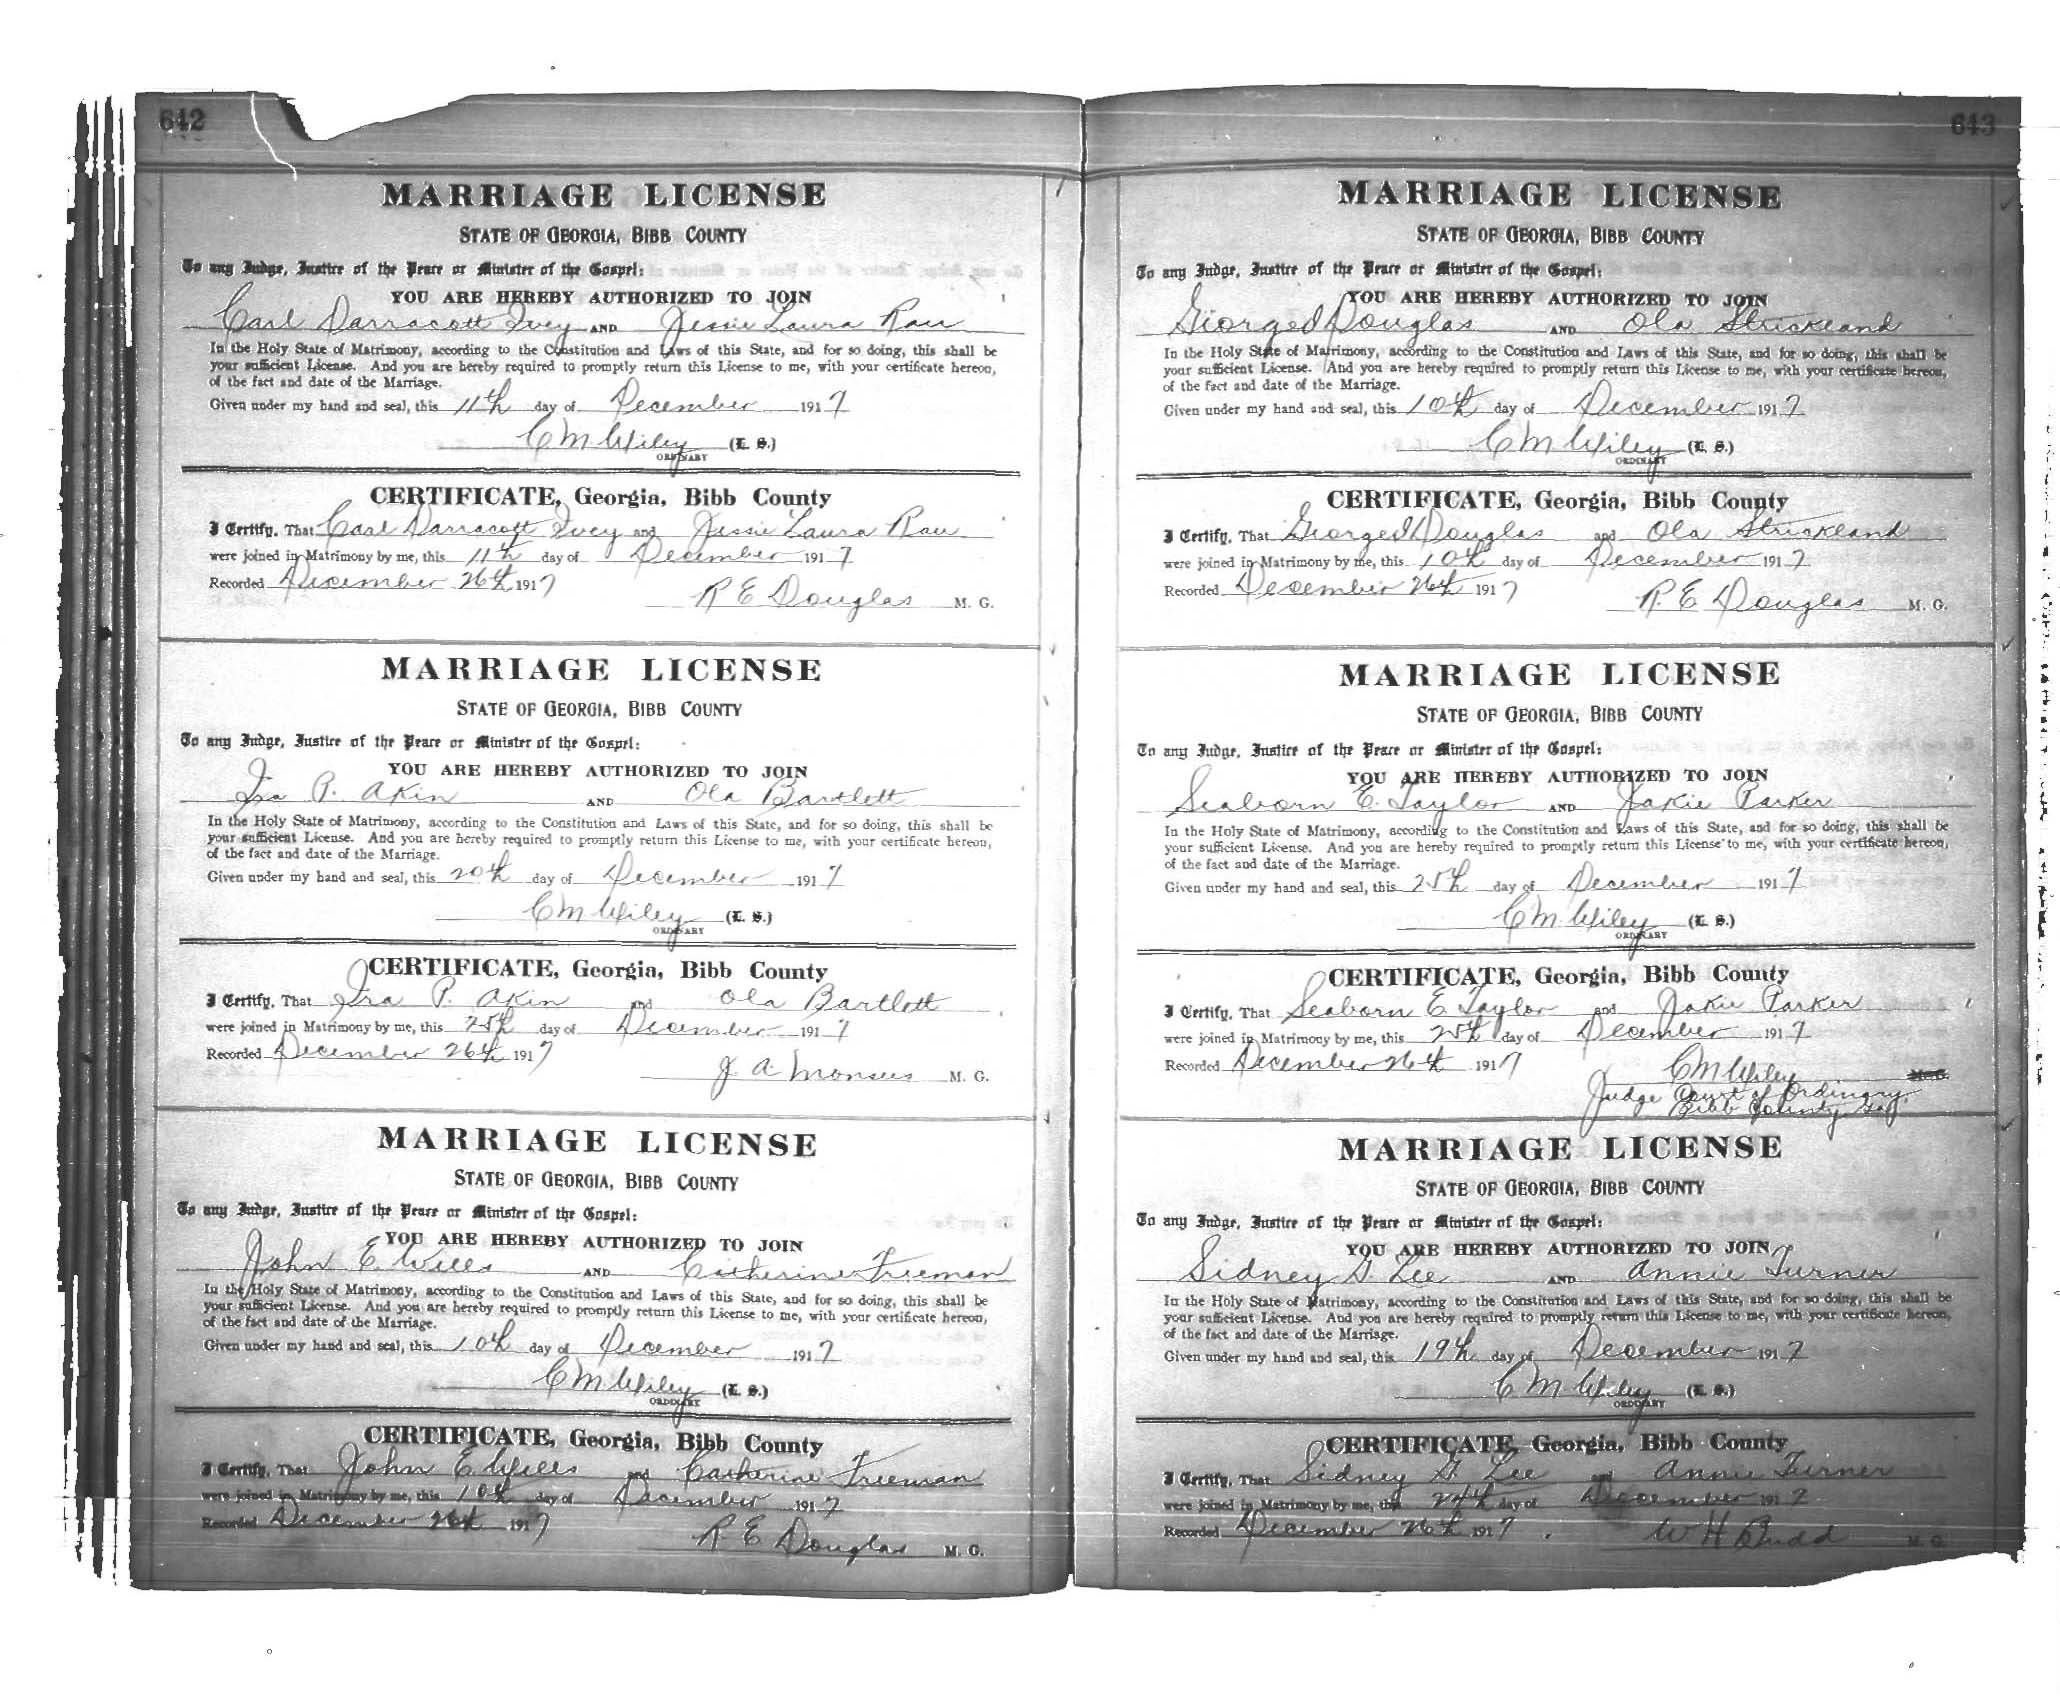 642
MARRIAGE LICENSE
STATE OF GEORGIA, BIBB COUNTY
To any Judge, Justice of the Peace or Minister of the Gospel:
YOU ARE HEREBY AUTHORIZED TO JOIN
Carl Darracott Ivey AND Jessie Laura Rau
In the Holy State of Matrimony, according to the Constitution and Laws of this State, and for so doing, this shall be
your sufficient License. And you are hereby required to promptly return this License to me, with your certificate hereon,
of the fact and date of the Marriage.
Given under my hand and seal, this 11th day of December 1917
C M Wiley (L. S.)
ORDINARY
CERTIFICATE, Georgia, Bibb County
I Certify, That Carl Darracott Ivey and Jessie Laura Rau
were joined in Matrimony by me, this 11th day of December 1917
Recorded December 26th 1917
R E Douglas M. G.
MARRIAGE LICENSE
STATE OF GEORGIA, BIBB COUNTY
To any Judge, Justice of the Peace or Minister of the Gospel:
YOU ARE HEREBY AUTHORIZED TO JOIN
Ira P. Akin AND Ola Bartlett
In the Holy State of Matrimony, according to the Constitution and Laws of this State, and for so doing, this shall be
your sufficient License. And you are hereby required to promptly return this License to me, with your certificate hereon,
of the fact and date of the Marriage.
Given under my hand and seal, this 20th day of December 1917
C M Wiley (L. S.)
ORDINARY
CERTIFICATE, Georgia, Bibb County
I Certify, That Ira P. Akin and Ola Bartlett
were joined in Matrimony by me, this 25th day of December 1917
Recorded December 26th 1917
J. A. Monsees M. G.
MARRIAGE LICENSE
STATE OF GEORGIA, BIBB COUNTY
To any Judge, Justice of the Peace or Minister of the Gospel:
YOU ARE HEREBY AUTHORIZED TO JOIN
John E. Wills AND Catherine Freeman
In the Holy State of Matrimony, according to the Constitution and Laws of this State, and for so doing, this shall be
your sufficient License. And you are hereby required to promptly return this License to me, with your certificate hereon,
of the fact and date of the Marriage.
Given under my hand and seal, this 10th day of December 1917
C M Wiley (L. S.)
ORDINARY
CERTIFICATE, Georgia, Bibb County
I Certify, That John E Wills and Catherine Freeman
were joined in Matrimony by me, this 10th day of December 1917
Recorded December 26th 1917
R E Douglas M. G.
643
MARRIAGE LICENSE
STATE OF GEORGIA, BIBB COUNTY
To any Judge, Justice of the Peace or Minister of the Gospel:
YOU ARE HEREBY AUTHORIZED TO JOIN
Douglas AND Ola Strickland
In the Holy State of Matrimony, according to the Constitution and Laws of this State, and for so doing, this shall be
your sufficient License. And you are hereby required to promptly return this License to me, with your certificate hereon,
of the fact and date of the Marriage.
Given under my hand and seal, this 10th day of December 1917
C M Wiley (L. S.)
ORDINARY
CERTIFICATE, Georgia, Bibb County
I Certify, That Douglas and Ola Strickland
were joined in Matrimony by me, this 10th day of December 1917
Recorded December 26th 1917
R. E. Douglas M. G.
MARRIAGE LICENSE
STATE OF GEORGIA, BIBB COUNTY
To any Judge, Justice of the Peace or Minister of the Gospel:
YOU ARE HEREBY AUTHORIZED TO JOIN
Seaborn E. Taylor AND Jakie Parker
In the Holy State of Matrimony, according to the Constitution and Laws of this State, and for so doing, this shall be
your sufficient License. And you are hereby required to promptly return this License to me, with your certificate hereon,
of the fact and date of the Marriage.
Given under my hand and seal, this 25th day of December 1917
C M Wiley (L. S.)
ORDINARY
CERTIFICATE, Georgia, Bibb County
I Certify, That Seaborn E Taylor and Jakie Parker
were joined in Matrimony by me, this 25th day of December 1917
Recorded December 26th 1917
C M Wiley M. G.
Judge Court of Ordinary
Bibb County Ga
MARRIAGE LICENSE
STATE OF GEORGIA, BIBB COUNTY
To any Judge, Justice of the Peace or Minister of the Gospel:
YOU ARE HEREBY AUTHORIZED TO JOIN
Sidney G Lee AND Annie Turner
In the Holy State of Matrimony, according to the Constitution and Laws of this State, and for so doing, this shall be
your sufficient License. And you are hereby required to promptly return this License to me, with your certificate hereon,
of the fact and date of the Marriage.
Given under my hand and seal, this 19th day of December 1917
C M Wiley (L. S.)
ORDINARY
CERTIFICATE, Georgia, Bibb County
I Certify, That Sidney G. Lee and Annie Turner
were joined in Matrimony by me, this 24th day of December 1917
Recorded December 26th 1917
W H Budd M. G.